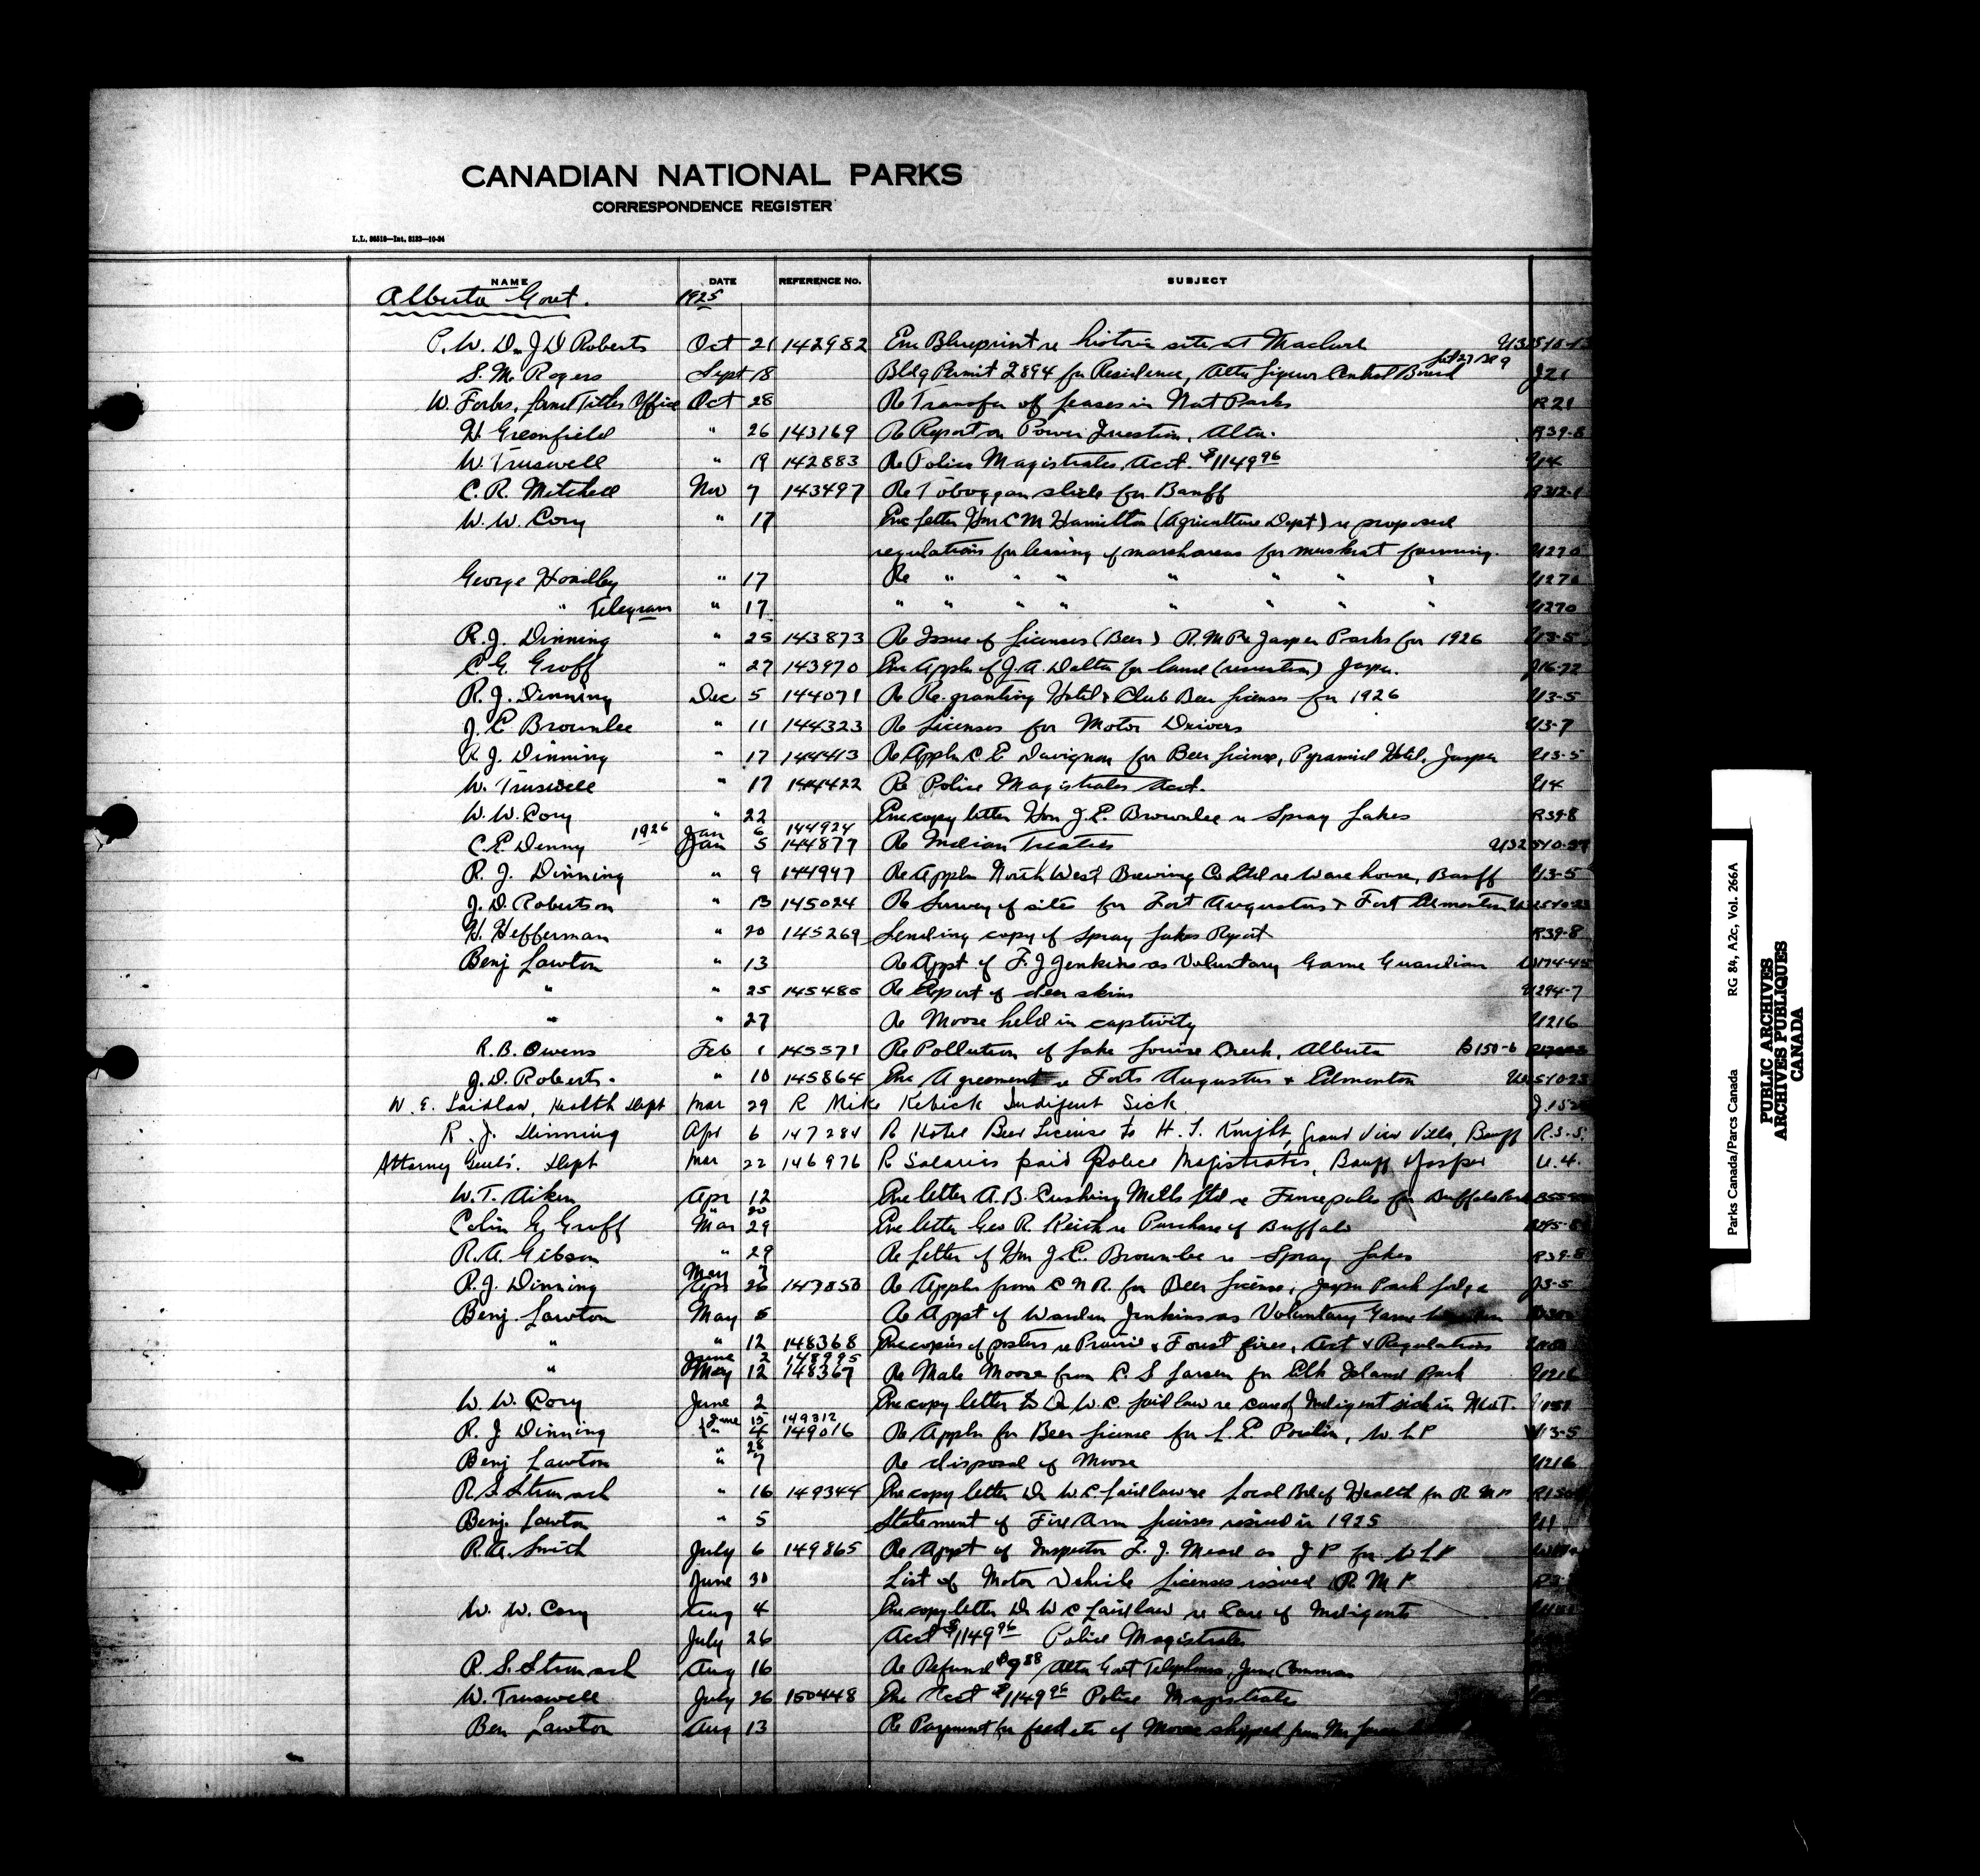 CANADIAN NATIONAL PARKS
CORRESPONDENCE REGISTER
NAME DATE REFERENCE No. SUBJECT
Alberta Govt. 1925
P.W.D. J D Roberts Oct 21 142982 Enc Blueprint re historic site at
S. M. Rogers Sept 18 Bldg Permit 2894 for Residence, Alta Liquor Control Board J21
W. Forbs, Land Titles Office Oct 28 Re Transfer of leases in Nat Parks R21
H Greenfield " 26 143169 Re Report on Power Question, Alta. R39-8
W. Truswell " 19 142883 Re Police Magistrates, Acct. $1149 96 U4
C. R. Mitchell Nov 7 143497 Re Toboggan slide for Banff
W. W. Cory " 17 Enc letter Hon C M Hamilton (Agriculture Dept) re proposed
regulations for leasing of marsh areas for muskrat farming. U270
George Hoadley " 17 Re " " " " " " " U270
" Telegram " 17 " " " " " " " " U270
R. J. Dinning " 25 143873 Re Issue of Licenses (Beer) R.M.P & Jasper Parks for 1926 U3-5
C. G. Groff " 27 143970 Enc Appln of J. A. Dalton for land Jasper. J16-72
R. J. Dinning Dec 5 144071 Re Re-granting Hotel & Club Beer licenses for 1926 U3-5
J. E Brownlee " 11 144323 Re Licenses for Motor Drivers U3-7
R. J. Dinning " 17 144413 Re Appln C E Davignon for Beer license, Pyramid Hotel, Jasper U3-5
W. Truswell " 17 144422 Re Police Magistrates Acct. U4
W. W. Cory " 22 Enc copy letter Hon J. E. Brownlee re Spray Lakes R39-8
1926 Jan 6 144924
C. E Denny Jan 5 144877 Re Indian Treaties
R. J. Dinning " 9 144997 Re Appln North West Brewing Co Ltd re Warehouse, Banff U3-5
J. D. Robertson " 13 145024 Re Survey of sites for Fort Augustus & Fort Edmonton
H. Hefferman " 20 145269 Sending copy of Spray Lakes Report R39-8
Benj Lawton " 13 Re Appt of F. J Jenkins as Voluntary Game Guardian
" " 25 145485 Re Export of deer skins U294-7
" " 27 Re Moose held in captivity U216
R. B. Owens Feb 1 145571 Re Pollution of Lake Louise Creek, Alberta B150-6
J. D. Roberts. " 10 145864 Enc Agreement re Forts Augustus & Edmonton
W. E. Laidlaw, Health Dept Mar 29 R Mike Kebick Indigent Sick
R. J. Dinning Apr 6 147284 R Hotel Beer License to H. S. Knight, Grand View Villa, Banff R.3-5.
Attorney Genl's. Dept Mar 22 146976 R Salaries paid Police Magistrates, Banff & Jasper U.4.
W. T. Aiken Apr 12 Enc letter A. B. Cushing Mills Ltd re Fence poles for Buffalo Park
" 20
Colin G. Groff Mar 29 Enc letter Geo R. Keith re Purchase of Buffalo
R. A. Gibson " 29 Re letter of Hon J. E. Brownlee re Spray Lakes R39-8
May 7
R. J. Dinning Apr 26 147850 Re Appln from C N R. for Beer license, Jasper Park Lodge J3-5
Benj. Lawton May 5 Re Appt of Warden Jenkins as Voluntary Game
" " 12 148368 Enc copies of posters re Prairie & Forest fires, Act & Regulations
June 2 148995
" May 12 148367 Re Male Moose from C. S Larsen for Elk Island Park U216
W. W. Cory June 2 Enc copy letter to Dr W. C. Laidlaw re care of Indigent sick in N.W.T.
June 15 149312
R. J Dinning " 4 149016 Re Appln for Beer license for L. E. W. L P 3-5
" 28
Benj Lawton " 7 Re disposal of Moose U216
R S " 16 149344 Enc copy letter Dr W. C. Laidlaw re Local Bd of Health for R M P
Benj. Lawton " 5 Statement of Fire Arm licenses issued in 1925 U1
R. A. Smith July 6 149865 Re Appt of Inspector as J P for W L P
June 30 List of Motor Vehicle Licenses issued R M P
W. W. Cory Aug 4 Enc copy letter Dr W C Laidlaw re Care of Indigents
July 26 Acct $1149 96 Police Magistrates
R. S. Aug 16 Re Refund $9 88 Alta Govt Telephones,
W. Truswell July 26 150448 Enc Acct $1149 96 Police Magistrates
Ben Lawton Aug 13 Re Payment for feed etc of Moose shipped from Mr
Parks Canada/Parcs Canada RG 84, A2c, Vol. 266A
PUBLIC ARCHIVES
ARCHIVES PUBLIQUES
CANADA